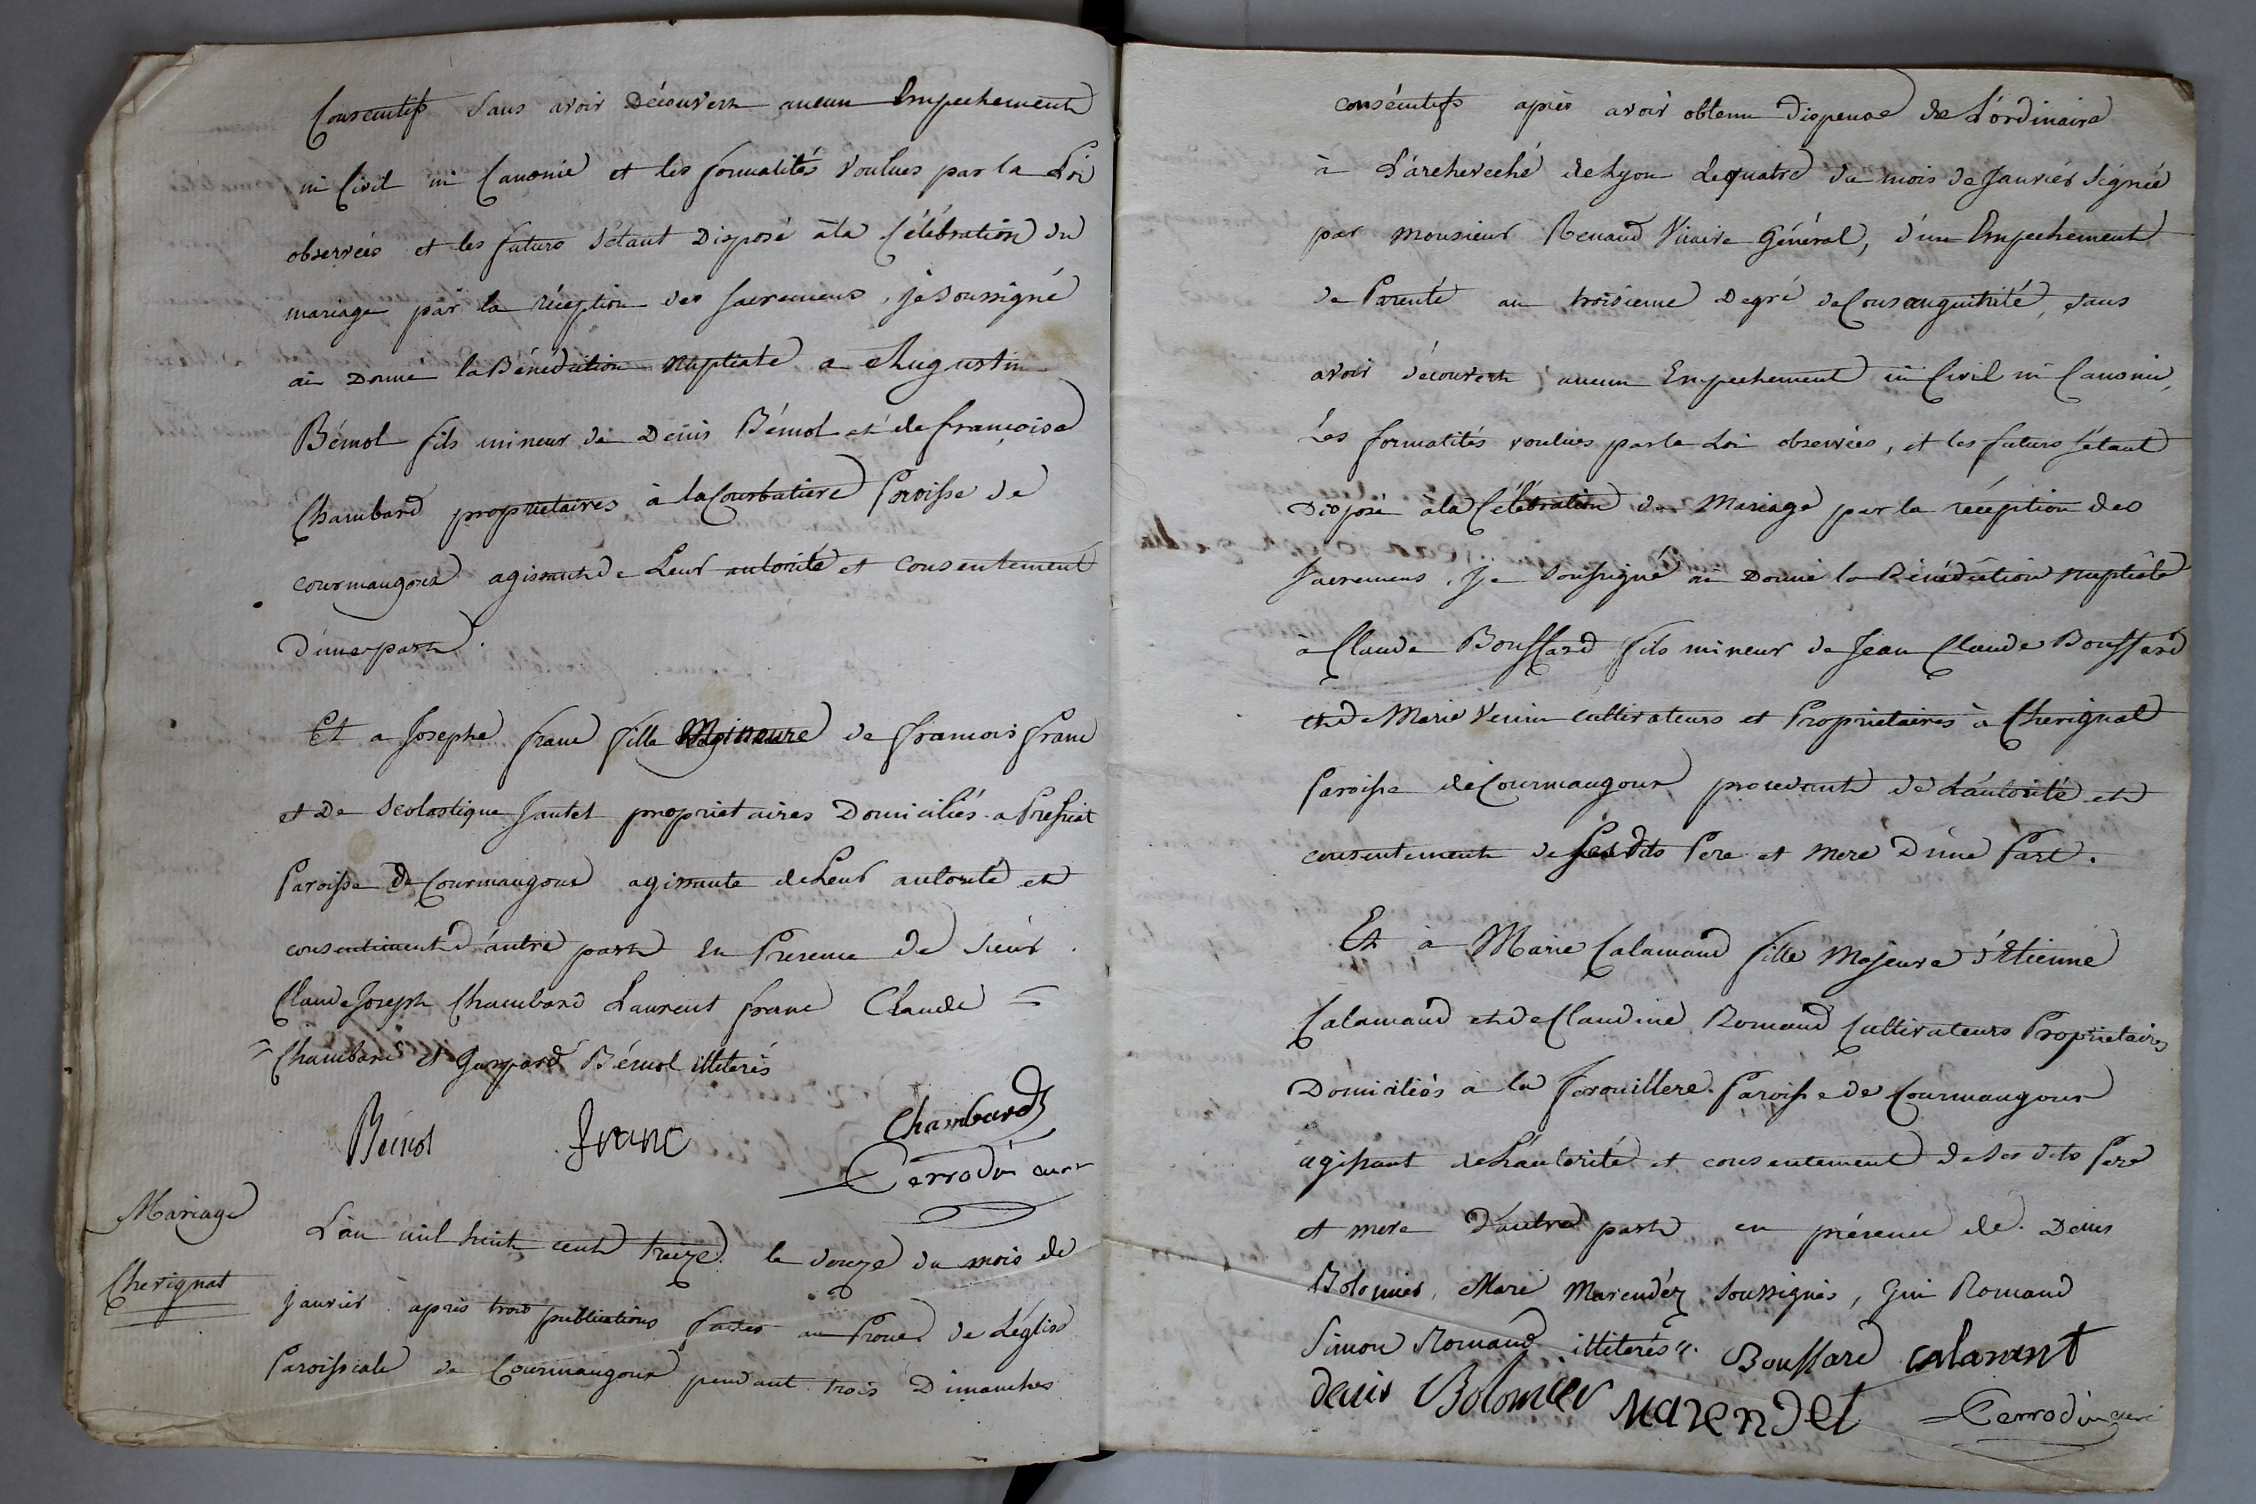 Consecutifs sans avoir Découvert aucun Empechement
ni Civil ni Canonic et les formalités voulues par la Loi
observées et les futurs s'etant Disposé a la Célébration du
mariage par la réception des sacremens, je soussigné
ai Donné la Bénédiction nuptiale a Augustin
Bémol fils mineur de Denis Bémol et de françoise
Chambard propriétaires à la Courbatiere Paroisse de
courmangoux agissant de Leur autorité et consentement
D'une part.
Et a Josephe franc fille Mineure de francois franc
et De Scolastique Jantet propriétaires Domiciliés a Pressiat
Paroisse de Courmangoux agissante de Leur autorité et
consentiment d'autre part En Presence de sieur
Claude Joseph Chambard Laurent franc Claude =
= Chambard et Gaspard Bémol illiterés
Bémol franc Chambard
Cerrodin curé
Mariage
Cherignat
L'an mil huit cent treize le douze du mois de
janvier après trois publications faites au Prone de L'église
Paroissiale de Courmangoux pendant trois Dimanches
consécutifs après avoir obtenu Dispense de L'ordinaire
à L'archeveché de Lyon Le quatre du mois de Janvier signée
par Monsieur Renaud Vicaire Général, d'un Empechement
de Parenté au troisieme Degré de Consanguinité, sans
avoir découvert aucun Empechement ni Civil ni Canonic,
Les formalités voulues par la Loi observées, et les futurs s'étant
Disposé à la Célébration du Mariage par la réception des
sacremens, Je soussigné ai Donné la Bénédiction nuptiale
à Claude Boussard fils mineur de Jean Claude Boussard
et de Marie Venin cultivateurs et Propriétaires à Cherignat
Paroisse de Courmangoux procedant de L'autorité et
consentement de ses dits Pere et Mere D'une Part.
Et à Marie Calamand fille Majeure d'Etienne
Calamand et de Claudine Romand Cultivateurs Propriétaires
Domiciliés à la farouillere Paroisse de Courmangoux
agissant de L'autorité et consentement de ses dits Pere
et mere D'autre part en présence de Denis
Bolomier, Marie Marendet, soussignés,
Romand
Simon Romand illiterés. Boussard calamant
denis Bolomier Marendet Cerrodin curé